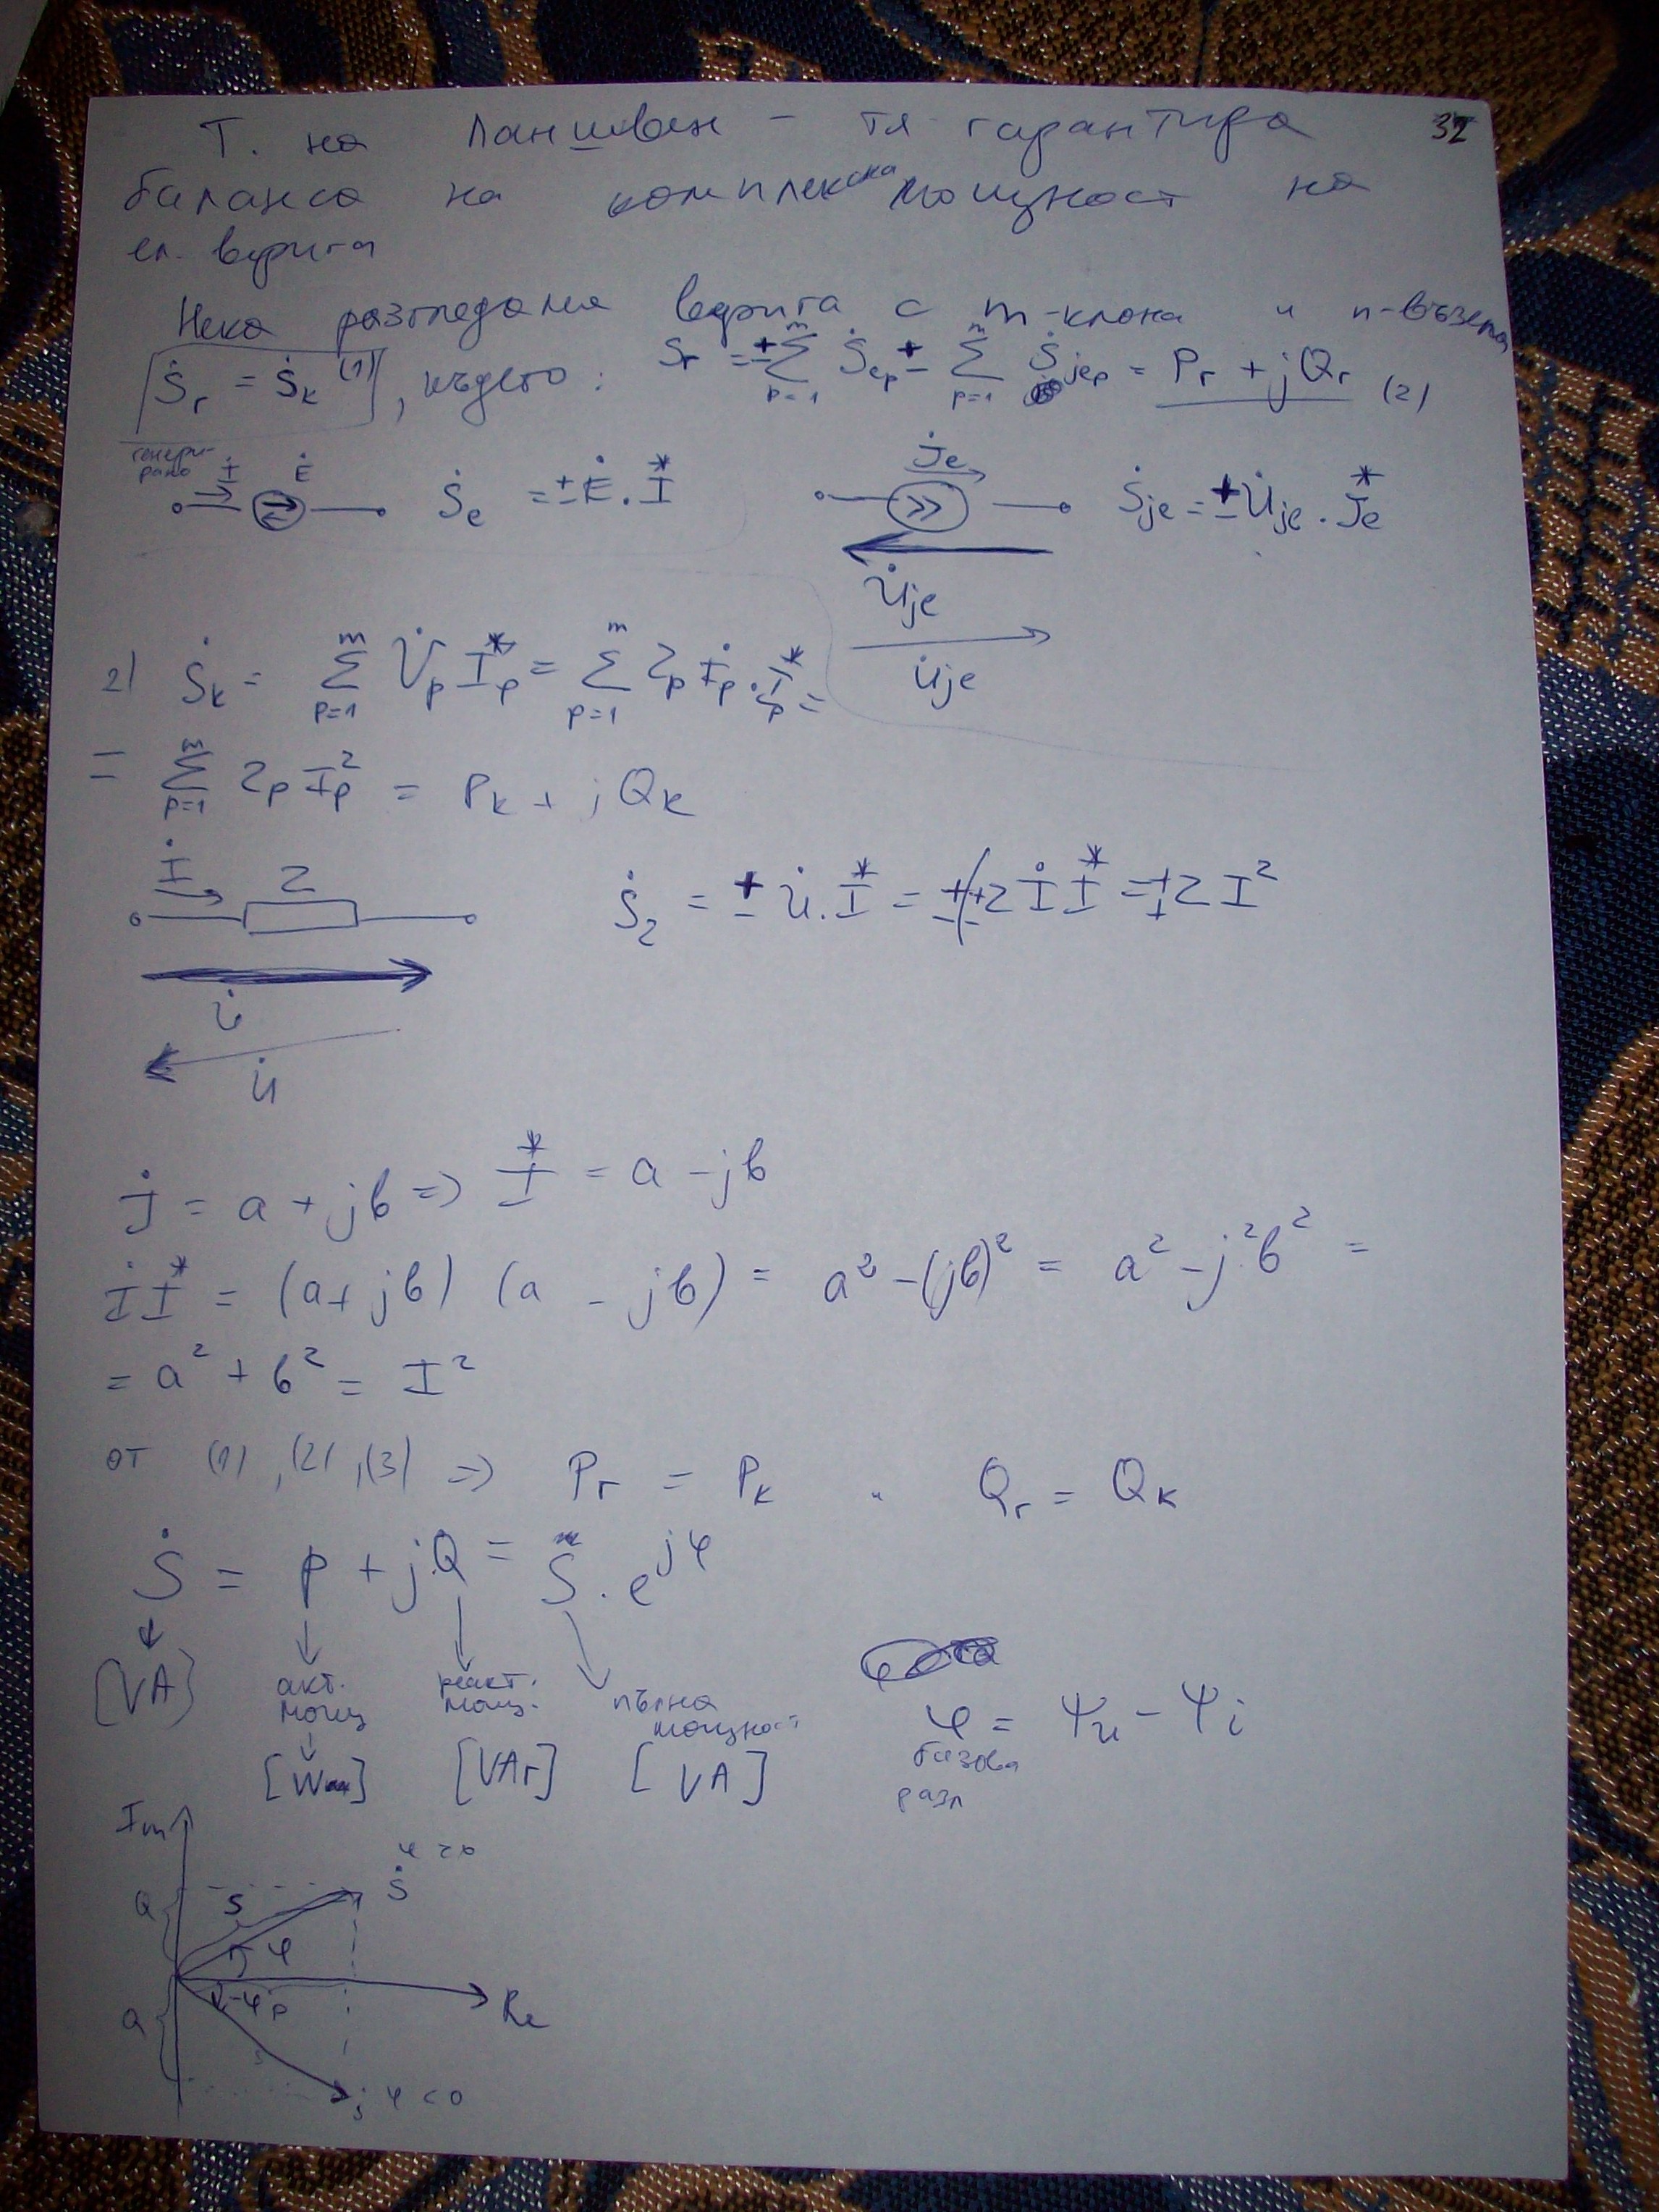 32
Т. на Ланшвен – тя гарантира
баланса на комплексна мощност на
ел. верига
Нека разгледаме верига с m-клона и n-възела
Ṡг = Ṡк (1), където: Sг = ±∑(p=1..m) Ṡep ± ∑(p=1..m) Ṡjep = Pг + jQг (2)
генери-
рано
İ Ė Ṡe = ±Ė . I* J̇e Ṡje = ±U̇je . J*e
U̇je
U̇je
2) Ṡк = ∑(p=1..m) U̇p I*p = ∑(p=1..m) Zp İp . I*p =
= ∑(p=1..m) Zp Ip² = Pк + jQк
İ Z Ṡz = ± U̇ . I* = ± Z İ I* = ± Z I²
U̇
U̇
İ = a + jb => I* = a - jb
İ I* = (a + jb) (a - jb) = a² - (jb)² = a² - j²b² =
= a² + b² = I²
от (1), (2), (3) => Pг = Pк и Qг = Qк
Ṡ = P + jQ = S . e^jφ
[VA] акт. мощ реакт. мощ. пълна мощност
φ = ψu - ψi
[W] [VAr] [VA]
фазова
разл
Im
φ > 0
Q S Ṡ
φ
-φ P Re
Q
S
Ṡ φ < 0